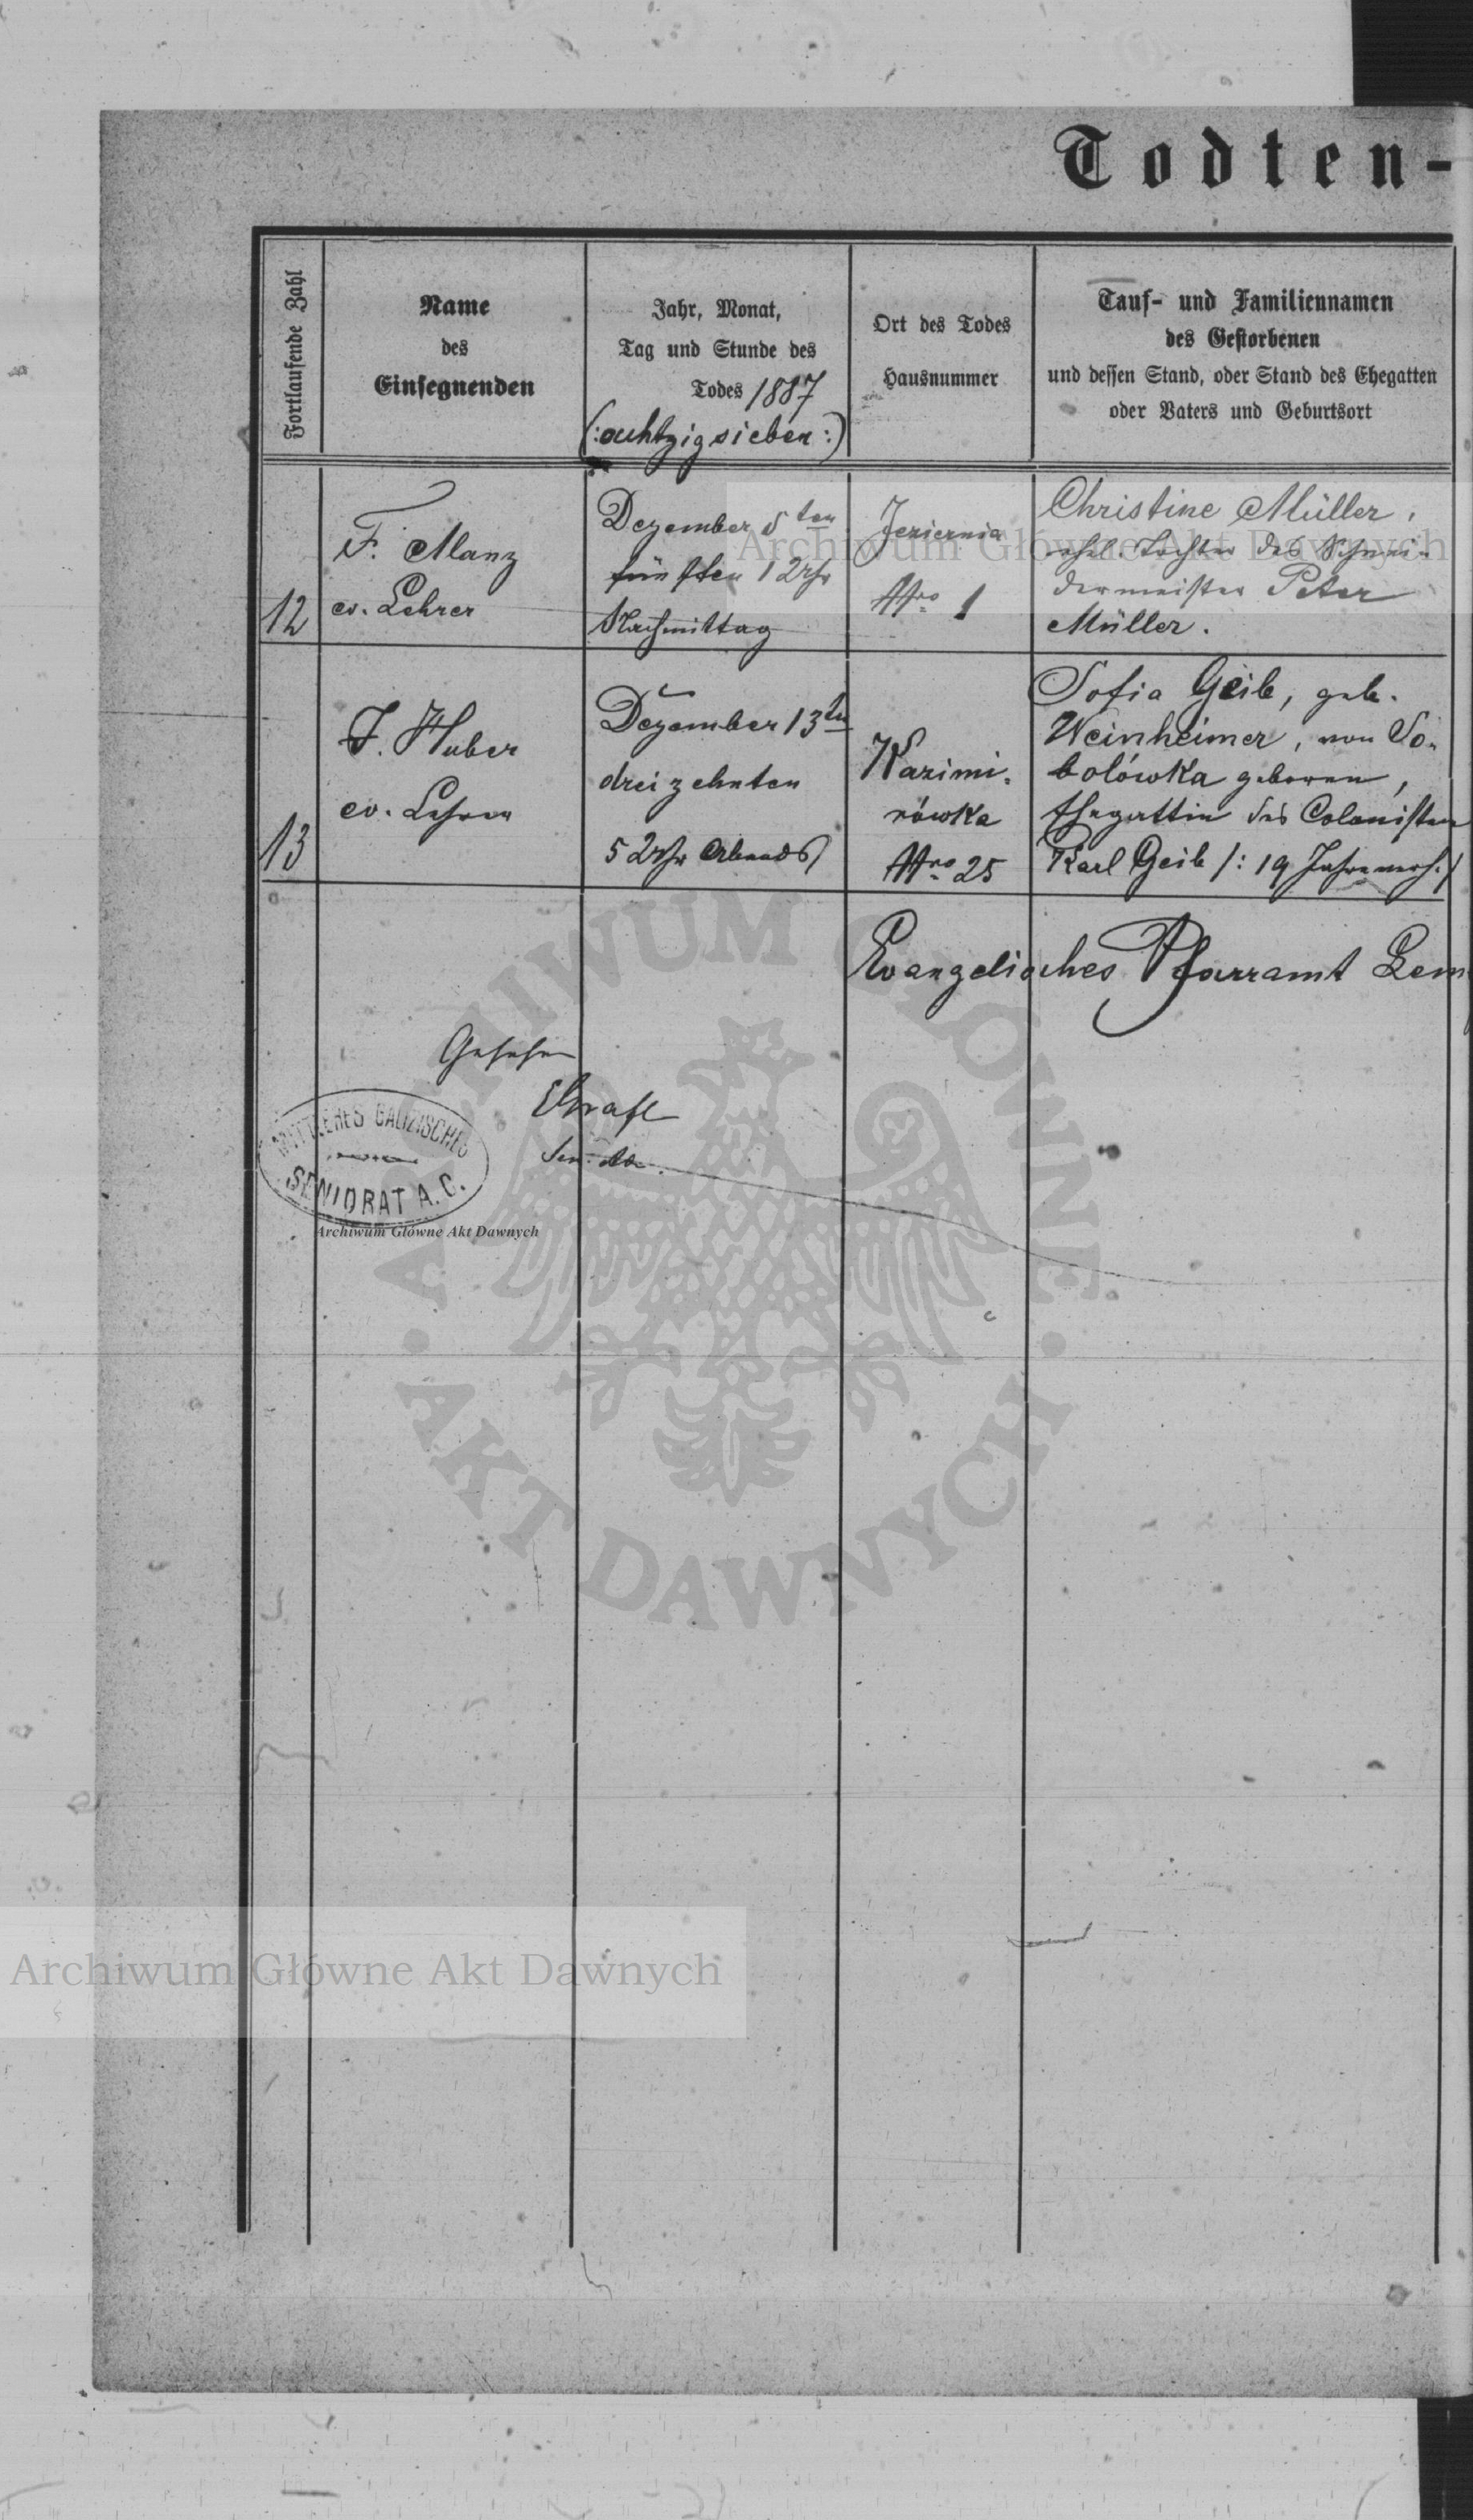 Todten-
Fortlaufende Zahl
Name
des
Einsegnenden
Jahr, Monat,
Tag und Stunde des
Todes 1887
(:achtzigsieben:)
Ort des Todes
Hausnummer
Tauf- und Familiennamen
des Gestorbenen
und dessen Stand, oder Stand des Ehegatten
oder Vaters und Geburtsort
12
F. Manz
ev. Lehrer
Dezember 5ten
fünften 1 Uhr
Nachmittag
Jeziernia
Nro 1
Christine Müller,
ehel. Tochter des Schnei-
dermeister Peter
Müller.
13
J. Huber
ev. Lehrer
Dezember 13ten
dreizehnten
5 Uhr Abends
Kazimi-
rówka
Nro 25
Sofia Geib, geb.
Weinheimer, von So-
bolówka geboren,
Ehegattin des Colonisten
Karl Geib /: 19 Jahre verh. /
Evangelisches Pfarramt Lem
Gesehen
Sen.
MITTLERES GALIZISCHES
SENIORAT A. C.
Archiwum Główne Akt Dawnych
Archiwum Główne Akt Dawnych
ARCHIWUM GŁÓWNE
AKT DAWNYCH
Archiwum Główne Akt Dawnych